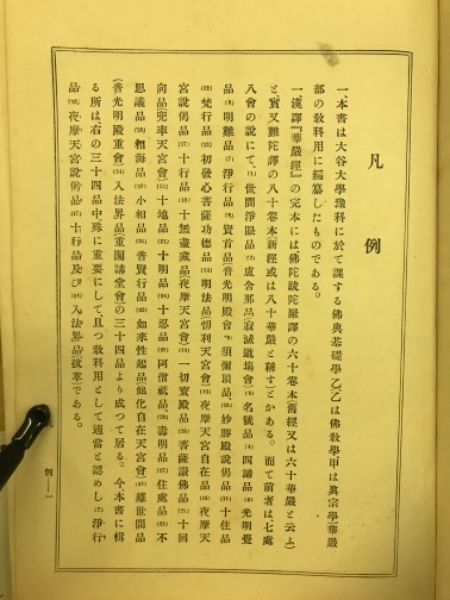 凡例
一、本書は大谷大學豫科に於て課する佛典基礎學乙(乙は佛敎學甲は眞宗學)華嚴
部の敎科用に編纂したものである。
一、漢譯『華嚴經』の完本には佛陀跋陀羅譯の六十卷本(舊經又は六十華嚴と云ふ)
と、實叉難陀譯の八十卷本(新經或は八十華嚴と稱す)とかある。而て前者は、七處
八會の說にて、(1)世間淨眼品(2)盧舍那品(寂滅道場會)(3)名號品(4)四諦品(5)光明覺
品(6)明難品(7)淨行品(8)賢首品(普光明殿會)(9)須彌頂品(10)妙勝殿說偈品(11)十住品
(12)梵行品(13)初發心菩薩功德品(14)明法品(忉利天宮會)(15)夜摩天宮自在品(16)夜摩天
宮說偈品(17)十行品(18)十無盡藏品(夜摩天宮會)(19)一切寶殿品(20)菩薩讃佛品(21)十回
向品(兜率天宮會)(22)十地品(23)十明品(24)十忍品(25)阿僧祇品(26)壽明品(27)住處品(28)不
思議品(29)相海品(30)小相品(31)普賢行品(32)如來性起品(他化自在天宮會)(33)離世間品
(普光明殿重會)(34)入法界品(重閣講堂會)の三十四品より成つて居る。今、本書に輯
る所は、右の三十四品中、殊に重要にして、且つ敎科用として適當と認めし(7)淨行
品(16)夜摩天宮說偈品(17)十行品及び(34)入法界品(拔萃)である。
凡例 一